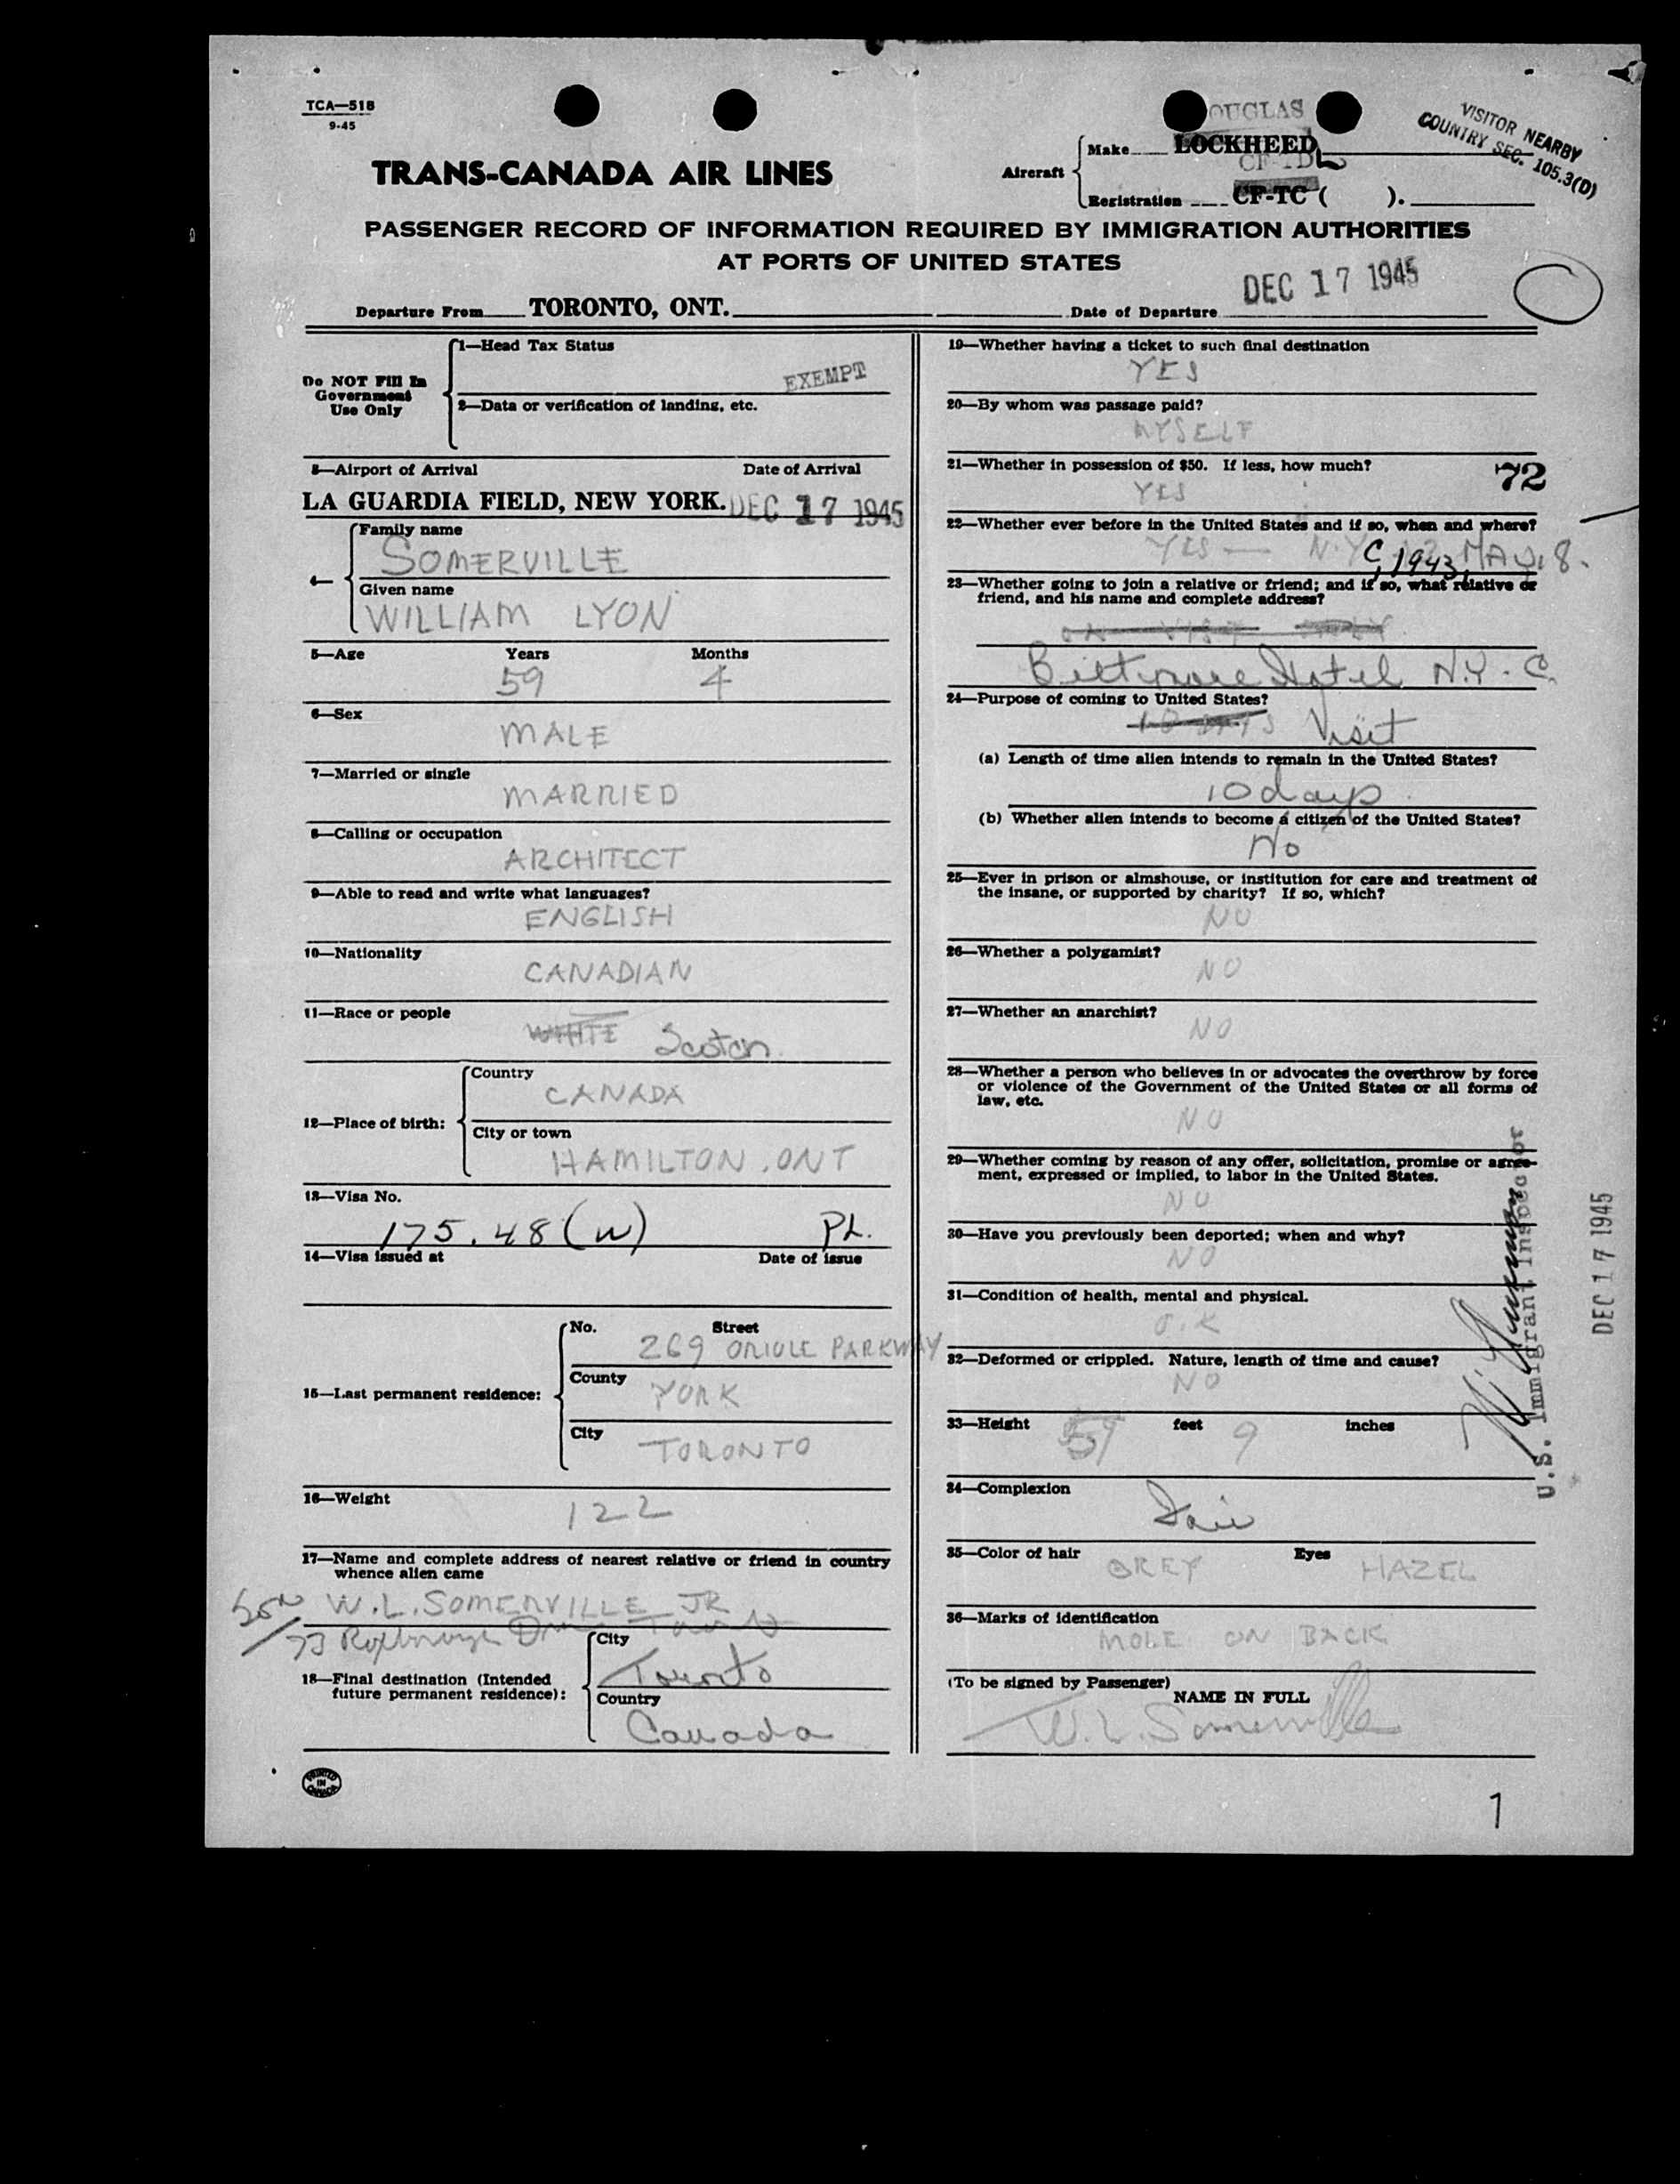 TCA—518
9-45
VISITOR NEARBY
COUNTRY SEC. 105.3(D)
OUGLAS
Aircraft
Make LOCKHEED
Registration CF-TC ( ).
TRANS-CANADA AIR LINES
PASSENGER RECORD OF INFORMATION REQUIRED BY IMMIGRATION AUTHORITIES
AT PORTS OF UNITED STATES
Departure From TORONTO, ONT. Date of Departure DEC 17 1945
Do NOT Fill In
Government
Use Only
1—Head Tax Status
EXEMPT
2—Data or verification of landing, etc.
3—Airport of Arrival Date of Arrival
LA GUARDIA FIELD, NEW YORK. DEC 17 1945
4—
Family name
SOMERVILLE
Given name
WILLIAM LYON
5—Age Years Months
59 4
6—Sex
MALE
7—Married or single
MARRIED
8—Calling or occupation
ARCHITECT
9—Able to read and write what languages?
ENGLISH
10—Nationality
CANADIAN
11—Race or people
WHITE Scotch
12—Place of birth:
Country
CANADA
City or town
HAMILTON, ONT
13—Visa No.
175.48 (W) PL.
14—Visa issued at Date of issue
15—Last permanent residence:
No. Street
269 ORIOLE PARKWAY
County
YORK
City
TORONTO
16—Weight
122
17—Name and complete address of nearest relative or friend in country
whence alien came
Son W.L. SOMERVILLE JR
73 Roxborough
18—Final destination (Intended
future permanent residence):
City
Toronto
Country
Canada
PRINTED
IN
CANADA
19—Whether having a ticket to such final destination
YES
20—By whom was passage paid?
MYSELF
21—Whether in possession of $50. If less, how much?
YES
72
22—Whether ever before in the United States and if so, when and where?
YES — N.Y.C, 1943
23—Whether going to join a relative or friend; and if so, what relative or
friend, and his name and complete address?
Biltmore Hotel N.Y.C.
24—Purpose of coming to United States?
Visit
(a) Length of time alien intends to remain in the United States?
10 days
(b) Whether alien intends to become a citizen of the United States?
No
25—Ever in prison or almshouse, or institution for care and treatment of
the insane, or supported by charity? If so, which?
NO
26—Whether a polygamist?
NO
27—Whether an anarchist?
NO
28—Whether a person who believes in or advocates the overthrow by force
or violence of the Government of the United States or all forms of
law, etc.
NO
29—Whether coming by reason of any offer, solicitation, promise or agree-
ment, expressed or implied, to labor in the United States.
NO
30—Have you previously been deported; when and why?
NO
31—Condition of health, mental and physical.
O.K
32—Deformed or crippled. Nature, length of time and cause?
NO
33—Height 5 feet 9 inches
34—Complexion
Fair
35—Color of hair GREY Eyes HAZEL
36—Marks of identification
MOLE ON BACK
(To be signed by Passenger)
NAME IN FULL
W. L. Somerville
U.S. Immigrant Inspector
DEC 17 1945
1